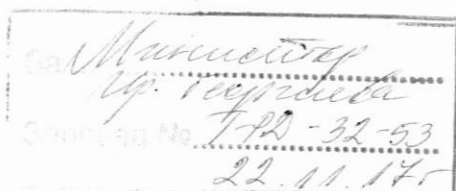 Министър
пр. Георгиева
Заповед № ТРД-32-53
22.11.17г